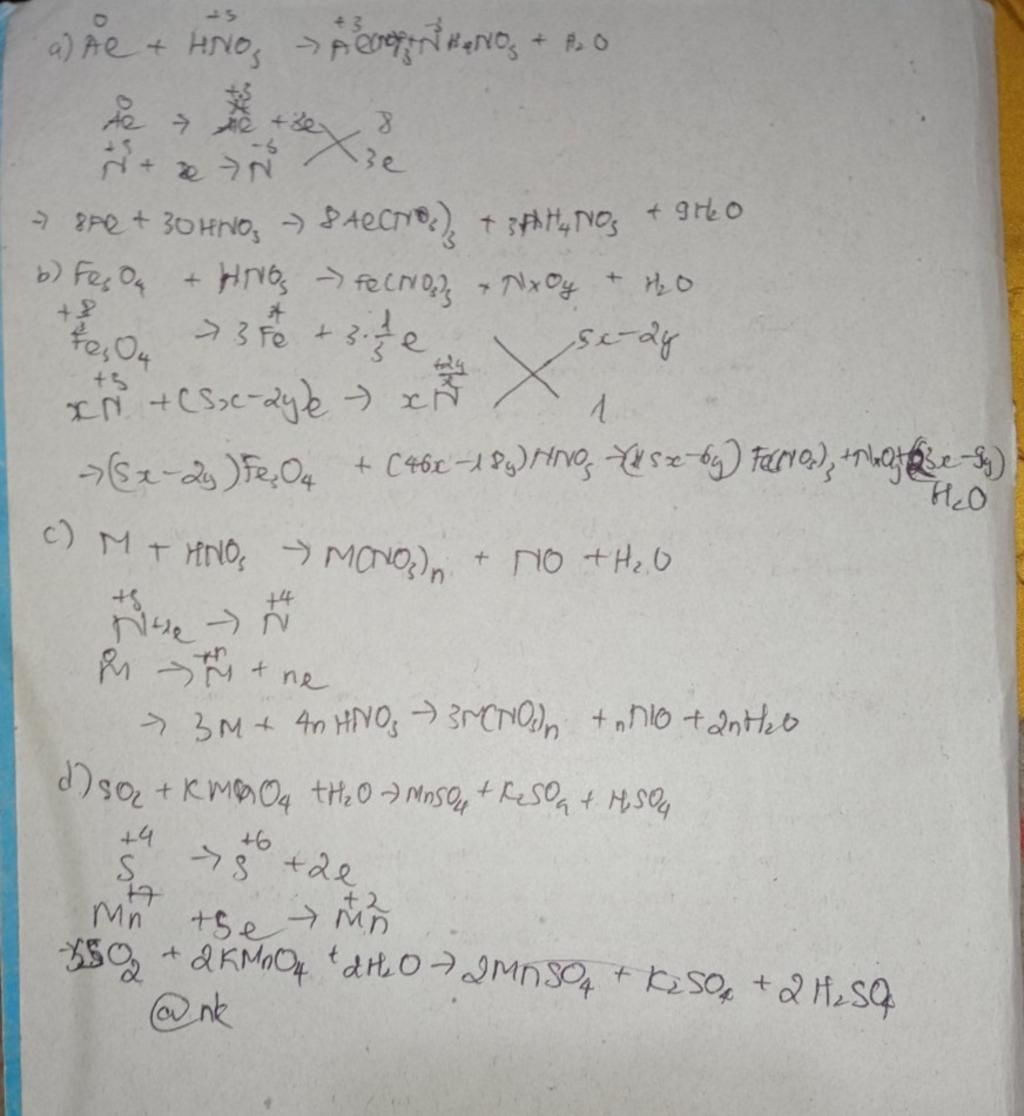 a) Al + HNO3 → Al(NO3)3 + NH4NO3 + H2O
0 +5 +3 -3
0 +3
Al → Al + 3e 8
+5 -3
N + 8e → N 3e
→ 8Al + 30HNO3 → 8Al(NO3)3 + 3NH4NO3 + 9H2O
b) Fe3O4 + HNO3 → Fe(NO3)3 + NxOy + H2O
Fe3O4 → 3Fe + 3.1/3e 5x-2y
xN + (5x-2y)e → xN 1
→ (5x-2y)Fe3O4 + (46x-18y)HNO3 → (15x-6y)Fe(NO3)3 + NxOy + (23x-9y)
H2O
c) M + HNO3 → M(NO3)n + NO + H2O
+5 +4
N + e → N
0 +n
M → M + ne
→ 3M + 4nHNO3 → 3M(NO3)n + nNO + 2nH2O
d) SO2 + KMnO4 + H2O → MnSO4 + K2SO4 + H2SO4
+4 +6
S → S + 2e
+7 +2
Mn + 5e → Mn
5SO2 + 2KMnO4 + 2H2O → 2MnSO4 + K2SO4 + 2H2SO4
@nk